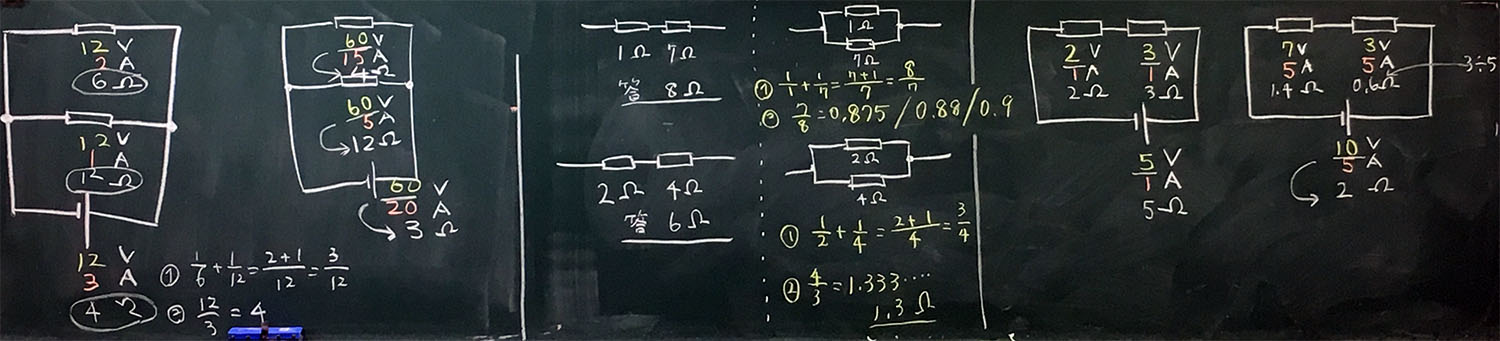 12 V
2 A
6 Ω
12 V
1 A
12 Ω
12 V
3 A
4 Ω
① 1/6 + 1/12 = 2+1/12 = 3/12
② 12/3 = 4
60 V
15 A
4 Ω
60 V
5 A
12 Ω
60 V
20 A
3 Ω
1Ω 7Ω
答 8Ω
2Ω 4Ω
答 6Ω
1Ω
7Ω
① 1/1 + 1/7 = 7+1/7 = 8/7
② 7/8 = 0.875 / 0.88 / 0.9
2Ω
4Ω
① 1/2 + 1/4 = 2+1/4 = 3/4
② 4/3 = 1.333....
1.3 Ω
2 V 3 V
1 A 1 A
2 Ω 3 Ω
5 V
1 A
5 Ω
7 V 3 V
5 A 5 A
1.4 Ω 0.6 Ω 3÷5
10 V
5 A
2 Ω